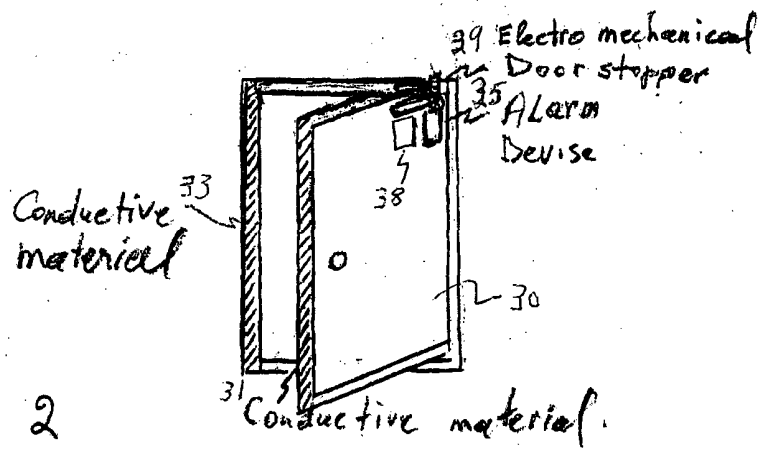 39 Electro mechanical
Door stopper
35 Alarm
Devise
38
33
Conductive
material
30
31
Conductive material.
2